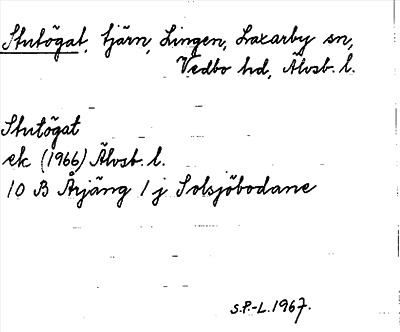 Stutögat, tjärn, Lingen, Laxarby sn,
Vedbo hd, Älvsb. l.
Stutögat
ek (1966) Älvsb. l.
10 B Årjäng 1 j Solsjöbodane
S.P.-L. 1967.